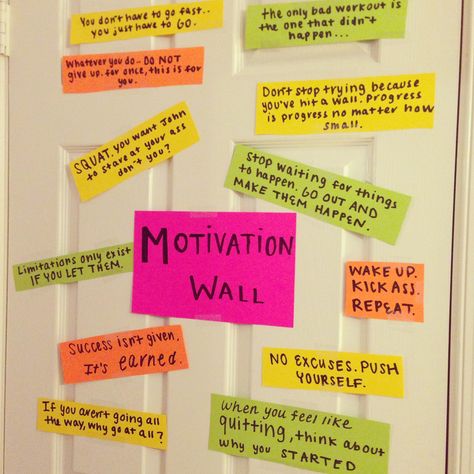 You don't have to go fast..
you just have to GO.
the only bad workout is
the one that didn't
happen...
Whatever you do - DO NOT
give up. for once, this is for
you.
Don't stop trying because
you've hit a wall. Progress
is progress no matter how
small.
SQUAT. you want John
to stare at your ass
don't you?
Stop waiting for things
to happen. GO OUT AND
MAKE THEM HAPPEN.
Limitations only exist
IF YOU LET THEM.
MOTIVATION
WALL
WAKE UP.
KICK ASS.
REPEAT.
Success isn't given.
It's earned.
NO EXCUSES. PUSH
YOURSELF.
If you aren't going all
the way, why go at all?
when you feel like
quitting, think about
why you STARTED